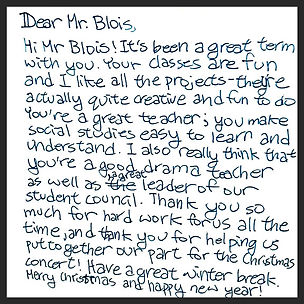 Dear Mr. Blois,
Hi Mr Blois! It's been a great term
with you. Your classes are fun
and I like all the projects-they're
actually quite creative and fun to do
You're a great teacher; you make
social studies easy to learn and
understand. I also really think that
you're a good drama teacher
as well as a great leader of our
student council. Thank you so
much for hard work for us all the
time, and thank you for helping us
put together our part for the Christmas
concert! Have a great winter break.
Merry Christmas and happy new year!